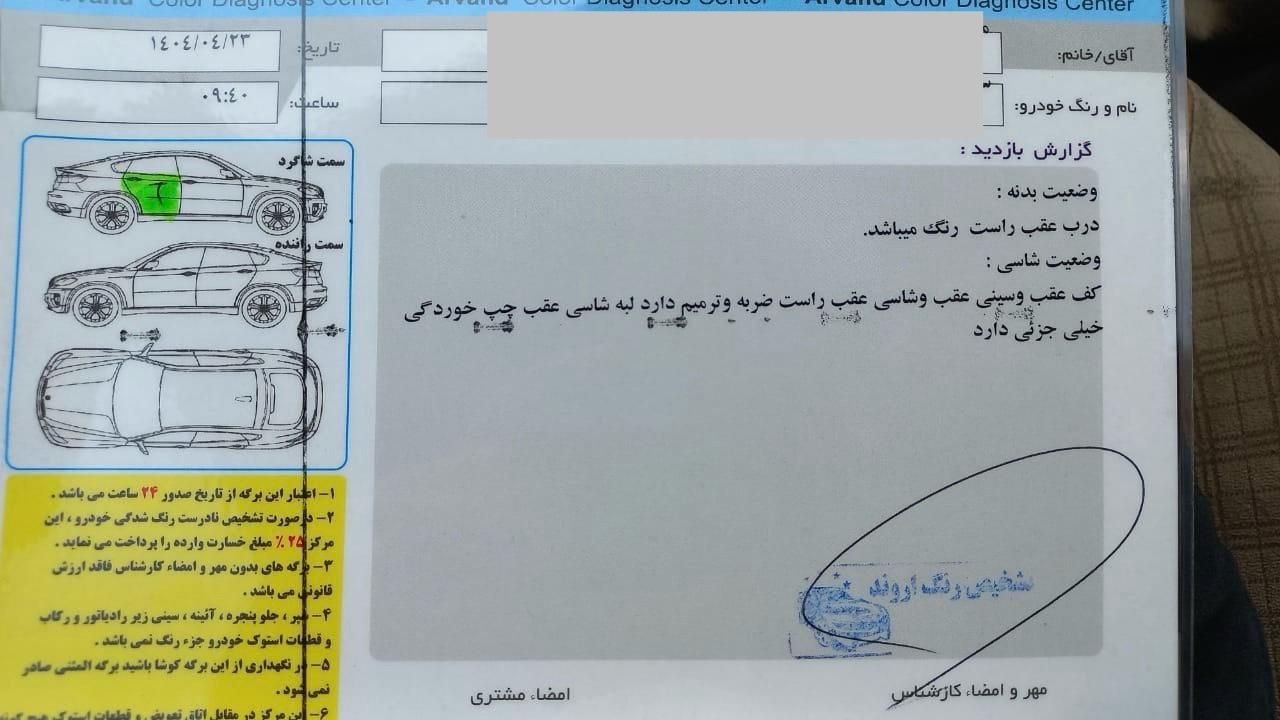 Arvand Color Diagnosis Center - Arvand Color Diagnosis Center - Arvand Color Diagnosis Center
آقای/خانم:
تاریخ: ۱٤۰٤/۰٤/۲۳
نام و رنگ خودرو:
ساعت: ۰۹:٤۰
گزارش بازدید :
وضعیت بدنه :
درب عقب راست رنگ میباشد.
وضعیت شاسی :
کف عقب وسینی عقب وشاسی عقب راست ضربه وترمیم دارد لبه شاسی عقب چپ خوردگی
خیلی جزئی دارد
تشخیص رنگ اروند
مهر و امضاء کارشناس
امضاء مشتری
سمت شاگرد
سمت راننده
۱- اعتبار این برگه از تاریخ صدور ۲۴ ساعت می باشد .
۲- درصورت تشخیص نادرست رنگ شدگی خودرو ، این
مرکز ۲۵ ٪ مبلغ خسارت وارده را پرداخت می نماید .
۳- برگه های بدون مهر و امضاء کارشناس فاقد ارزش
قانونی می باشد .
۴- سپر ، جلو پنجره ، آئینه ، سینی زیر رادیاتور و رکاب
و قطعات استوک خودرو جزء رنگ نمی باشد .
۵- در نگهداری از این برگه کوشا باشید برگه المثنی صادر
نمی شود .
۶- این مرکز در مقابل اتاق تعویض و قطعات استوک هیچ گونه